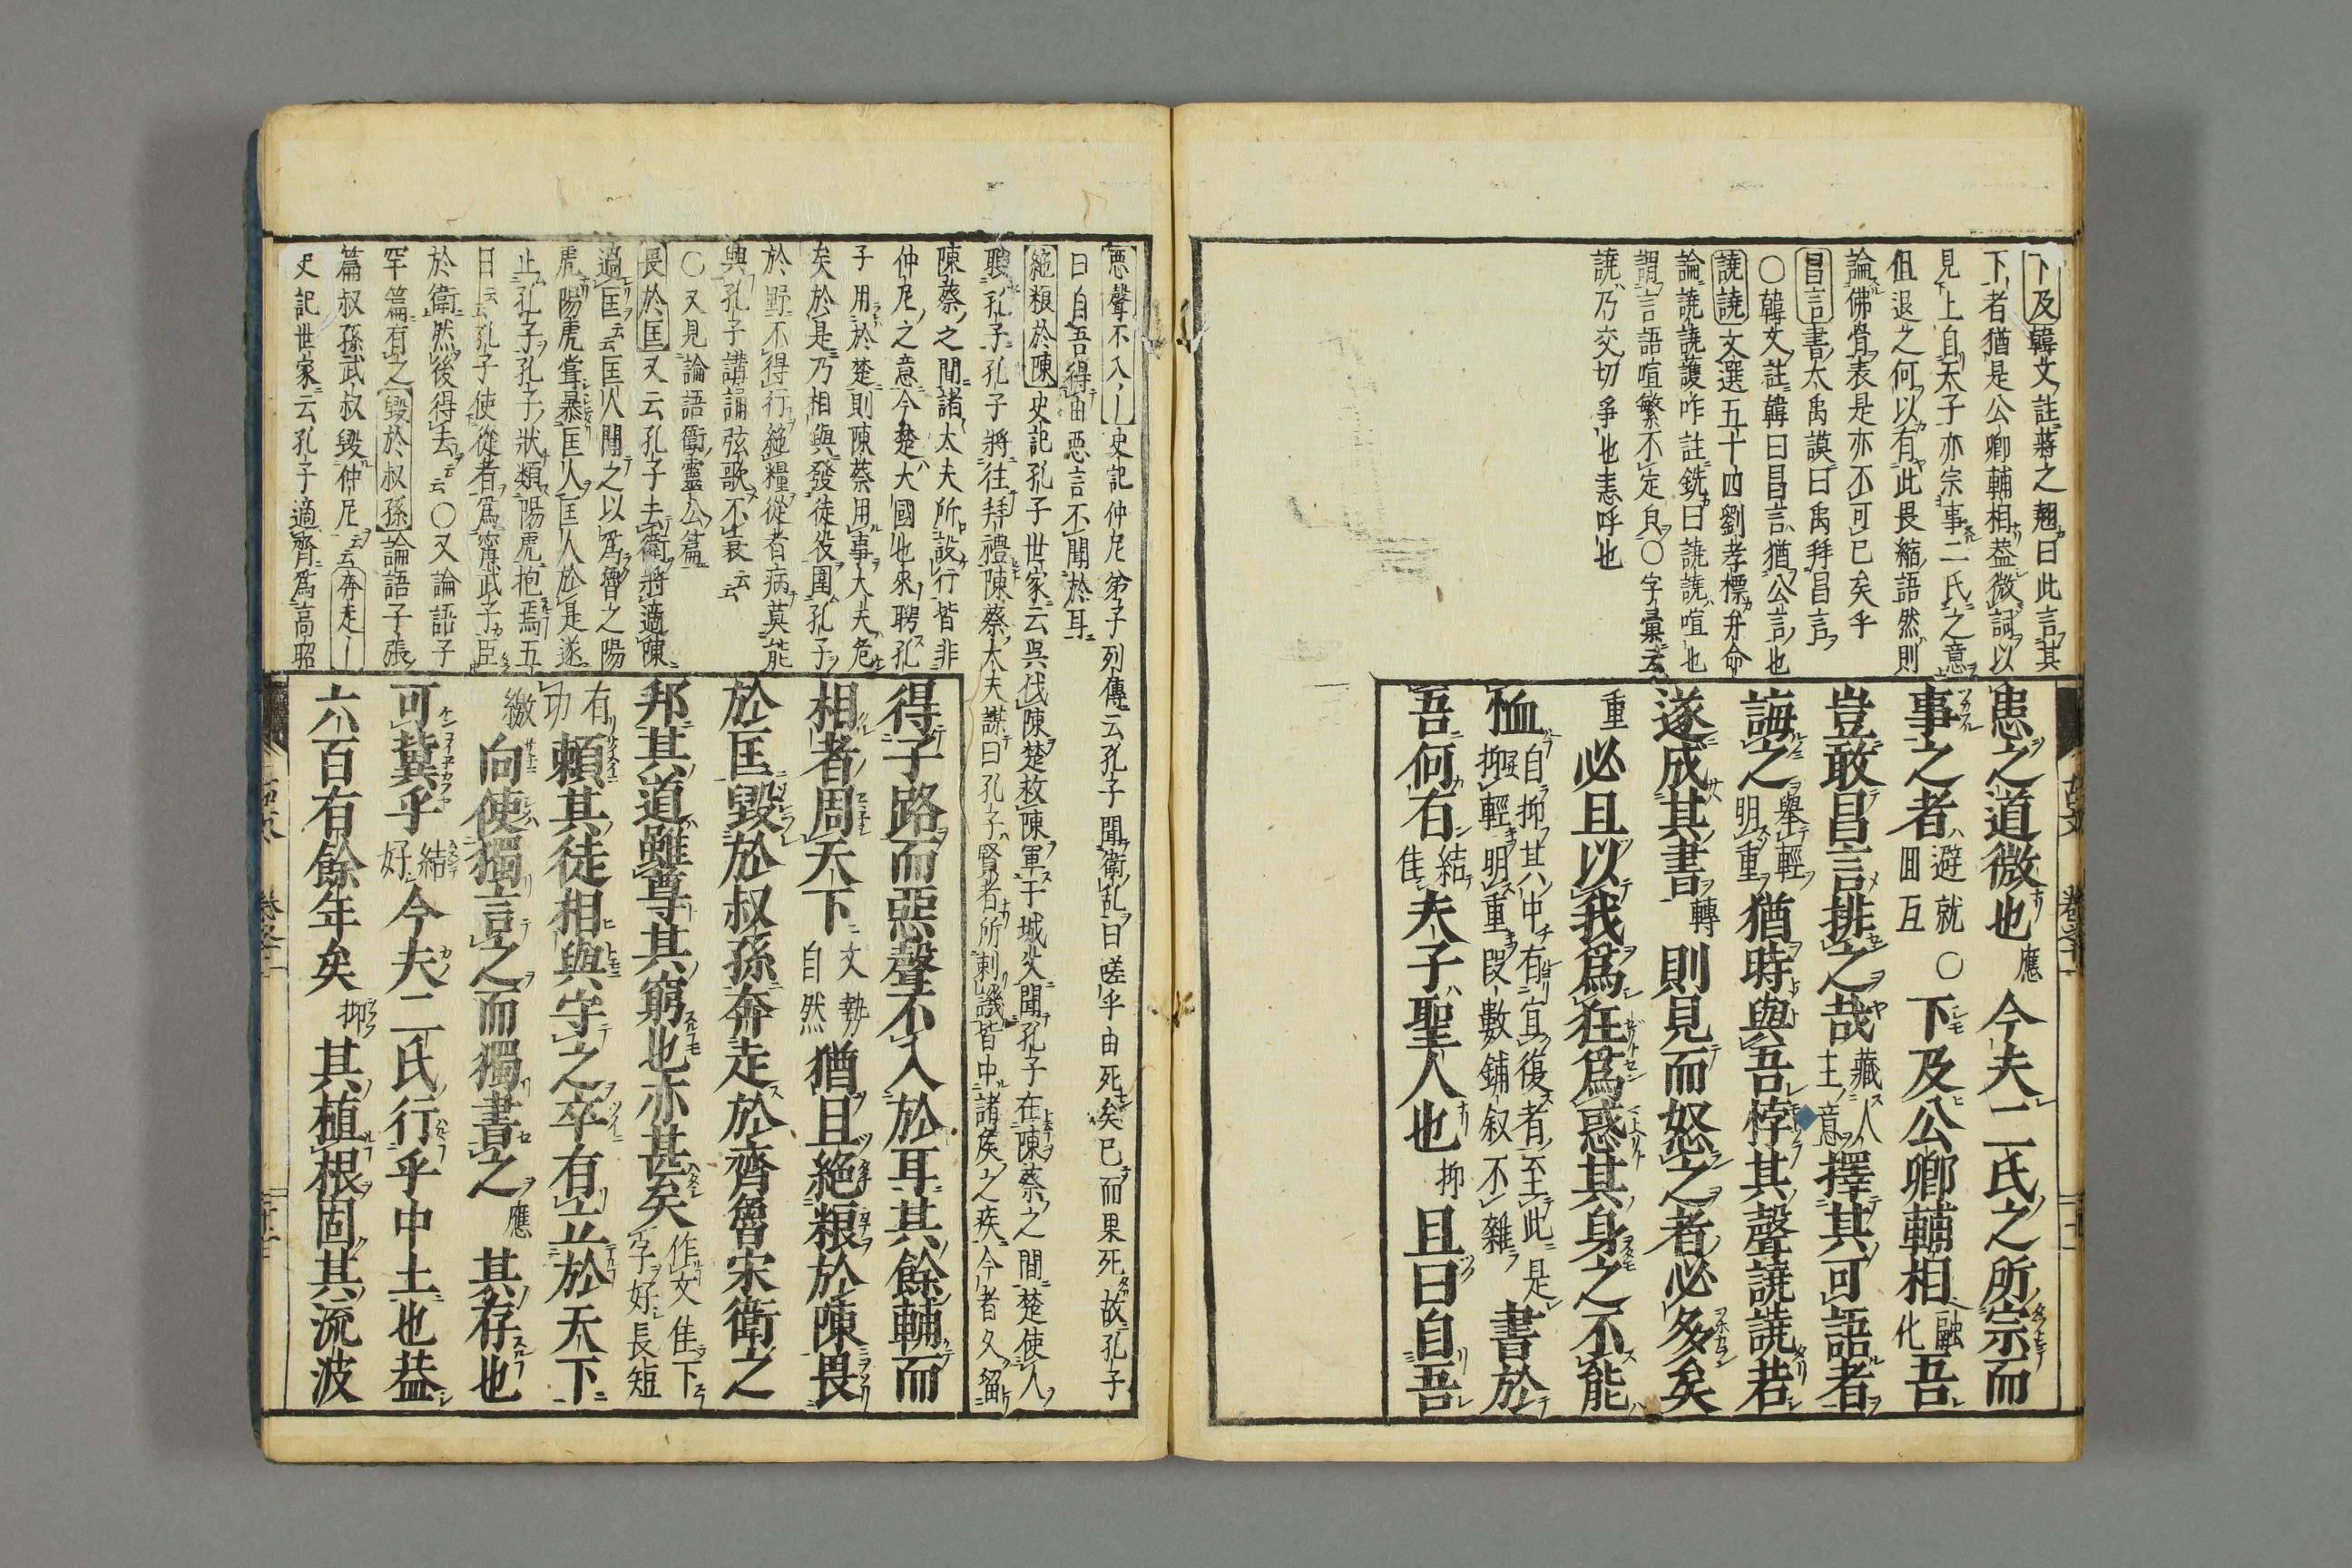 下及韓文註蔣之翹曰此言其
下者猶是公卿輔相蓋微詞以
見上自天子亦宗事二氏之意
但退之何以有此畏縮語然則
論佛骨表是亦不可已矣乎
昌言書大禹謨曰禹拜昌言
〇韓文註韓曰昌言猶公言也
譊譊文選五十四劉孝標弁命
論譊譊讙咋註銑曰譊譊喧也
謂言語喧繁不定皃〇字彙云
譊乃交切爭也恚呼也
患之道微也應今夫二氏之所宗而
事之者避就回互〇下及公卿輔相融化吾
豈敢昌言排之哉藏人主意擇其可語者
誨之舉輕明重猶時與吾悖其聲譊譊若
遂成其書轉則見而怒之者必多矣
重必且以我爲狂爲惑其身之不能
恤自抑其中有宜復者至此是抑輕明重段數鋪叙不雜書於
吾何有結佳夫子聖人也抑且曰自吾
悪聲不入〡史記仲尼弟子列傳云孔子聞衛乱曰嗟乎由死矣已而果死故孔子
曰自吾得由悪言不聞於耳
絶粮於陳史記孔子世家云呉伐陳楚救陳軍于城父聞孔子在陳蔡之間楚使人
聘孔子孔子將往拜禮陳蔡大夫謀曰孔子賢者所刺譏皆中諸矦之疾今者久留
陳蔡之間諸大夫所設行皆非
仲尼之意今楚大國也來聘孔
子用於楚則陳蔡用事大夫危
矣於是乃相與發徒役圍孔子
於野不得行絶糧從者病莫能
興孔子講誦弦歌不衰云云
〇又見論語衛靈公篇
畏於匡又云孔子去衛將適陳
過匡云云匡人聞之以爲魯之陽
虎陽虎甞暴匡人匡人於是遂
止孔子孔子狀類陽虎拘焉五
日云云孔子使從者爲甯武子臣
於衛然後得去云云〇又論語子
罕篇有之毀於叔孫論語子張
篇叔孫武叔毀仲尼云云奔走〡
史記世家云孔子適齊爲高昭
得子路而惡聲不入於耳其餘輔而
相者周天下文勢自然猶且絶粮於陳畏
於匡毀於叔孫奔走於齊魯宋衛之
邦其道雖尊其窮也亦甚矣作文佳下字好長短
有功頼其徒相與守之卒有立於天下
繳向使獨言之而獨書之應其存也
可冀乎結好今夫二氏行乎中土也蓋
六百有餘年矣抑其植根固其流波